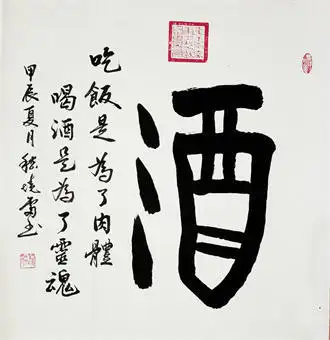 酒
吃飯是為了肉體
喝酒是為了靈魂
甲辰夏月